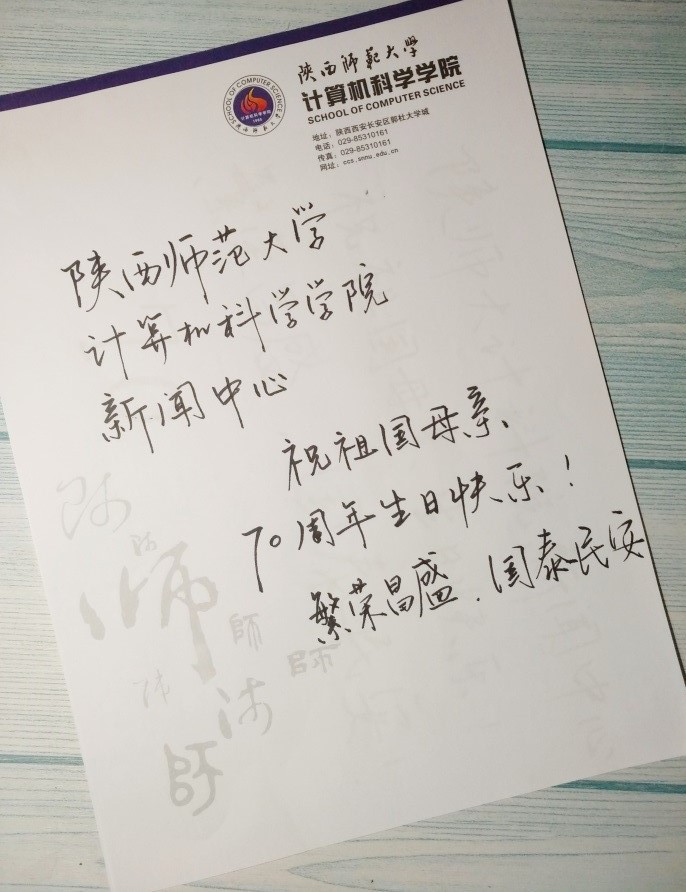 陕西师范大学
计算机科学学院
SCHOOL OF COMPUTER SCIENCE
地址：陕西西安长安区郭杜大学城
电话：029-85310161
传真：029-85310161
网址：ccs.snnu.edu.cn
SCHOOL OF COMPUTER SCIENCE
计算机科学学院
陕西师范大学
计算机科学学院
新闻中心
祝祖国母亲、
70周年生日快乐！
繁荣昌盛．国泰民安
师
師
師
師